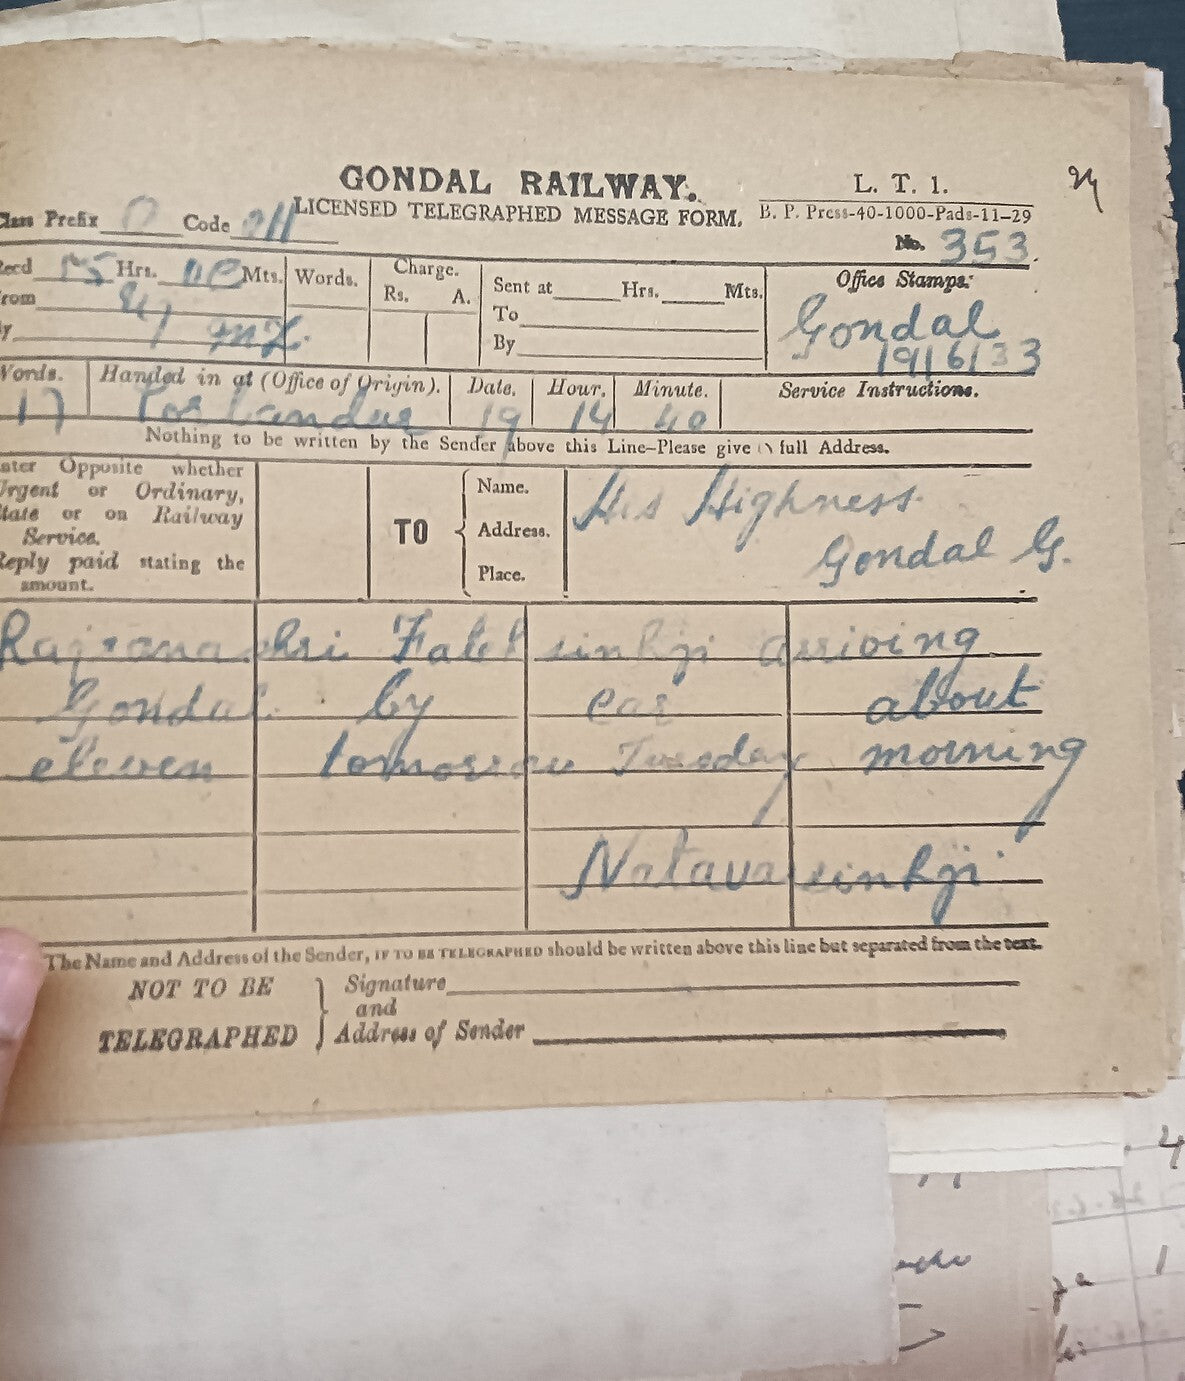 GONDAL RAILWAY.
L. T. 1.
LICENSED TELEGRAPHED MESSAGE FORM.
B. P. Press-40-1000-Pads-11-29
Class Prefix O Code
No. 353
Recd 15 Hrs. Mts.
From
By
Words.
Charge.
Rs. A.
Sent at Hrs. Mts.
To
By
Office Stamps:
Gondal
19/6/33
Words. Handed in at (Office of Origin). Date. Hour. Minute. Service Instructions.
17 Porbandar 19 14 40
Nothing to be written by the Sender above this Line—Please give full Address.
Enter Opposite whether
Urgent or Ordinary,
State or on Railway
Service.
Reply paid stating the
amount.
TO
Name.
Address.
Place.
His Highness
Gondal G.
Rajrana shri Fateh sinhji arriving
Gondal by car about
eleven tomorrow Tuesday morning
Natavarsinhji
The Name and Address of the Sender, IF TO BE TELEGRAPHED should be written above this line but separated from the text.
NOT TO BE
TELEGRAPHED
Signature
and
Address of Sender